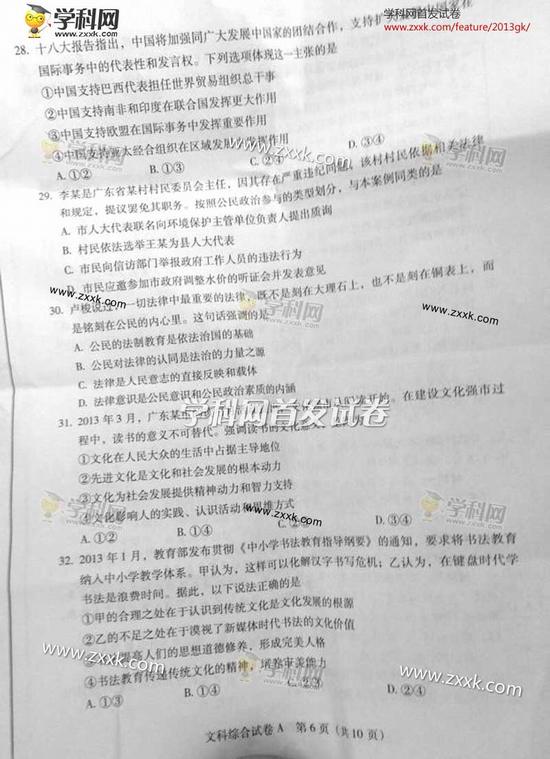 学科网
www.zxxk.com
学科网首发试卷
www.zxxk.com/feature/2013gk/
28. 十八大报告指出，中国将加强同广大发展中国家的团结合作，支持扩大
国际事务中的代表性和发言权。下列选项体现这一主张的是
①中国支持巴西代表担任世界贸易组织总干事
②中国支持南非和印度在联合国发挥更大作用
③中国支持欧盟在国际事务中发挥重要作用
④中国支持亚太经合组织在区域发展中发挥作用
A. ①② B. ①③ C. ②④ D. ③④
www.zxxk.com
29. 李某是广东省某村村民委员会主任，因其存在严重违纪问题，该村村民依据相关法律
和规定，提议罢免其职务。按照公民政治参与的类型划分，与本案例同类的是
A. 市人大代表联名向环境保护主管单位负责人提出质询
B. 村民依法选举王某为县人大代表
C. 市民向信访部门举报政府工作人员的违法行为
D. 市民应邀参加市政府调整水价的听证会并发表意见
www.zxxk.com
学科网
www.zxxk.com
30. 卢梭说过，一切法律中最重要的法律，既不是刻在大理石上，也不是刻在铜表上，而
是铭刻在公民的内心里。这句话强调的是
A. 公民的法制教育是依法治国的基础
B. 公民对法律的认同是法治的力量之源
C. 法律是人民意志的直接反映和载体
D. 法律意识是公民意识和公民政治素质的内涵
学科网首发试卷
31. 2013 年 3 月，广东某市 在建设文化强市过
程中，读书的意义不可替代。强调读书的文化意义
①文化在人民大众的生活中占据主导地位
②先进文化是文化和社会发展的根本动力
③文化为社会发展提供精神动力和智力支持
④文化影响人的实践、认识活动和思维方式
A. ①② B. ①③ D. ③④
学科网
www.zxxk.com
学科网
www.zxxk.com
32. 2013 年 1 月，教育部发布贯彻《中小学书法教育指导纲要》的通知，要求将书法教育
纳入中小学教学体系。甲认为，这样可以化解汉字书写危机；乙认为，在键盘时代学
书法是浪费时间。据此，以下说法正确的是
①甲的合理之处在于认识到传统文化是文化发展的根源
②乙的不足之处在于漠视了新媒体时代书法的文化价值
提高人们的思想道德修养，形成完美人格
④书法教育传递传统文化的精神，培养审美能力
A. ①③ B. ①④ C. ②③ D. ②④
www.zxxk.com
www.zxxk.com
文科综合试卷 A 第 6 页 (共 10 页)